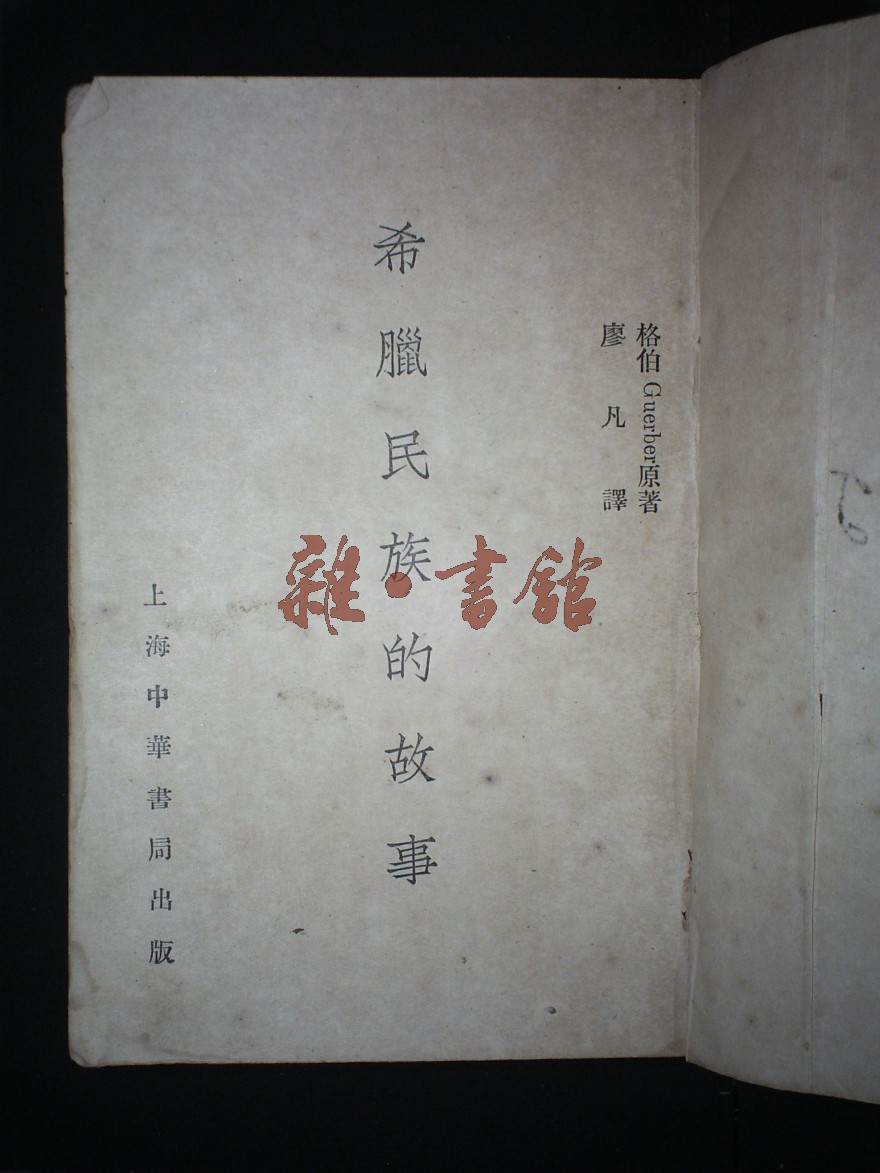 格伯 Guerber原著
廖凡譯
希臘民族的故事
上海中華書局出版
雜·書館